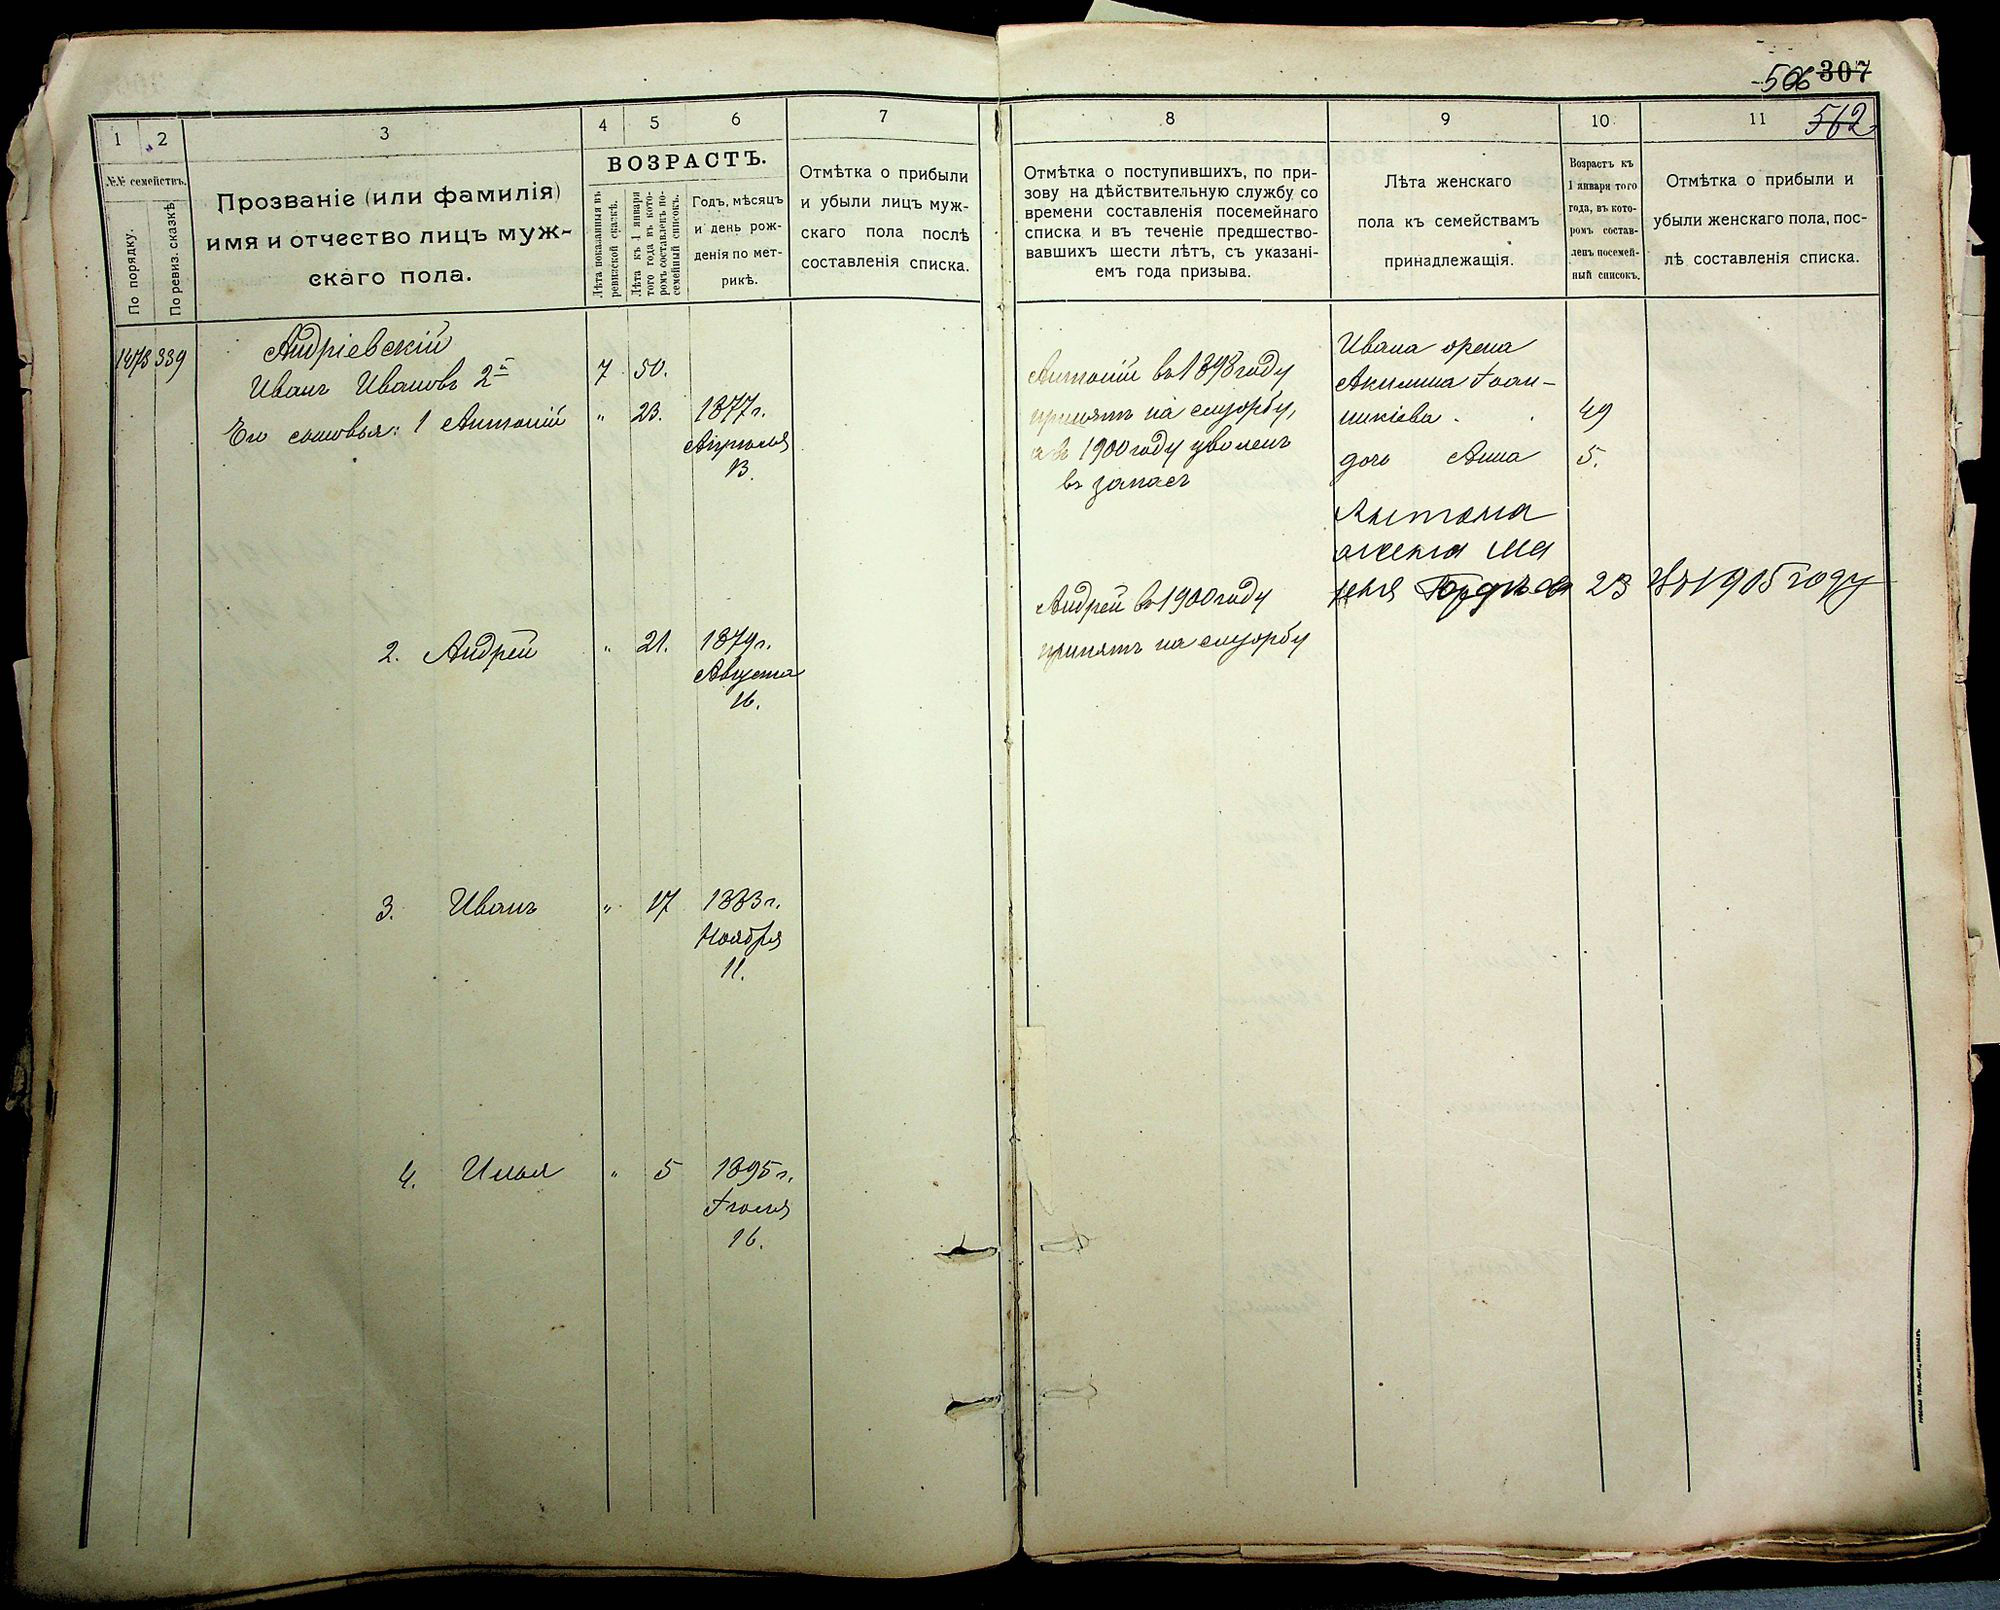 506 307
562
1 2 3 4 5 6 7
№№ семействъ.
По порядку.
По ревиз. сказкѣ.
Прозваніе (или фамилія)
имя и отчество лицъ муж-
скаго пола.
ВОЗРАСТЪ.
Лѣта показанныя въ
ревизской сказкѣ.
Лѣта къ 1 января
того года въ кото-
ромъ составленъ по-
семейный списокъ.
Годъ, мѣсяцъ
и день рож-
денія по мет-
рикѣ.
Отмѣтка о прибыли
и убыли лицъ муж-
скаго пола послѣ
составленія списка.
1478 339 Андріевскій
Иванъ Ивановъ 2й 7 50.
Его сыновья: 1 Антоній " 23. 1877 г.
Апрѣля
13.
2. Андрей " 21. 1879 г.
Августа
16.
3. Иванъ " 17 1883 г.
Ноября
11.
4. Илья " 5 1895 г.
Іюля
16.
8 9 10 11
Отмѣтка о поступившихъ, по при-
зову на дѣйствительную службу со
времени составленія посемейнаго
списка и въ теченіе предшество-
вавшихъ шести лѣтъ, съ указані-
емъ года призыва.
Лѣта женскаго
пола къ семействамъ
принадлежащія.
Возрастъ къ
1 января того
года, въ кото-
ромъ состав-
ленъ посемей-
ный списокъ.
Отмѣтка о прибыли и
убыли женскаго пола, пос-
лѣ составленія списка.
Антоній въ 1898 году
принятъ на службу,
а въ 1900 году уволенъ
въ запасъ
Андрей въ 1900 году
принятъ на службу
Ивана жена
Акилина Іоан-
никіева . . 49
дочь Анна 5.
Антона
жена Ма
рія 23 въ 1905 году